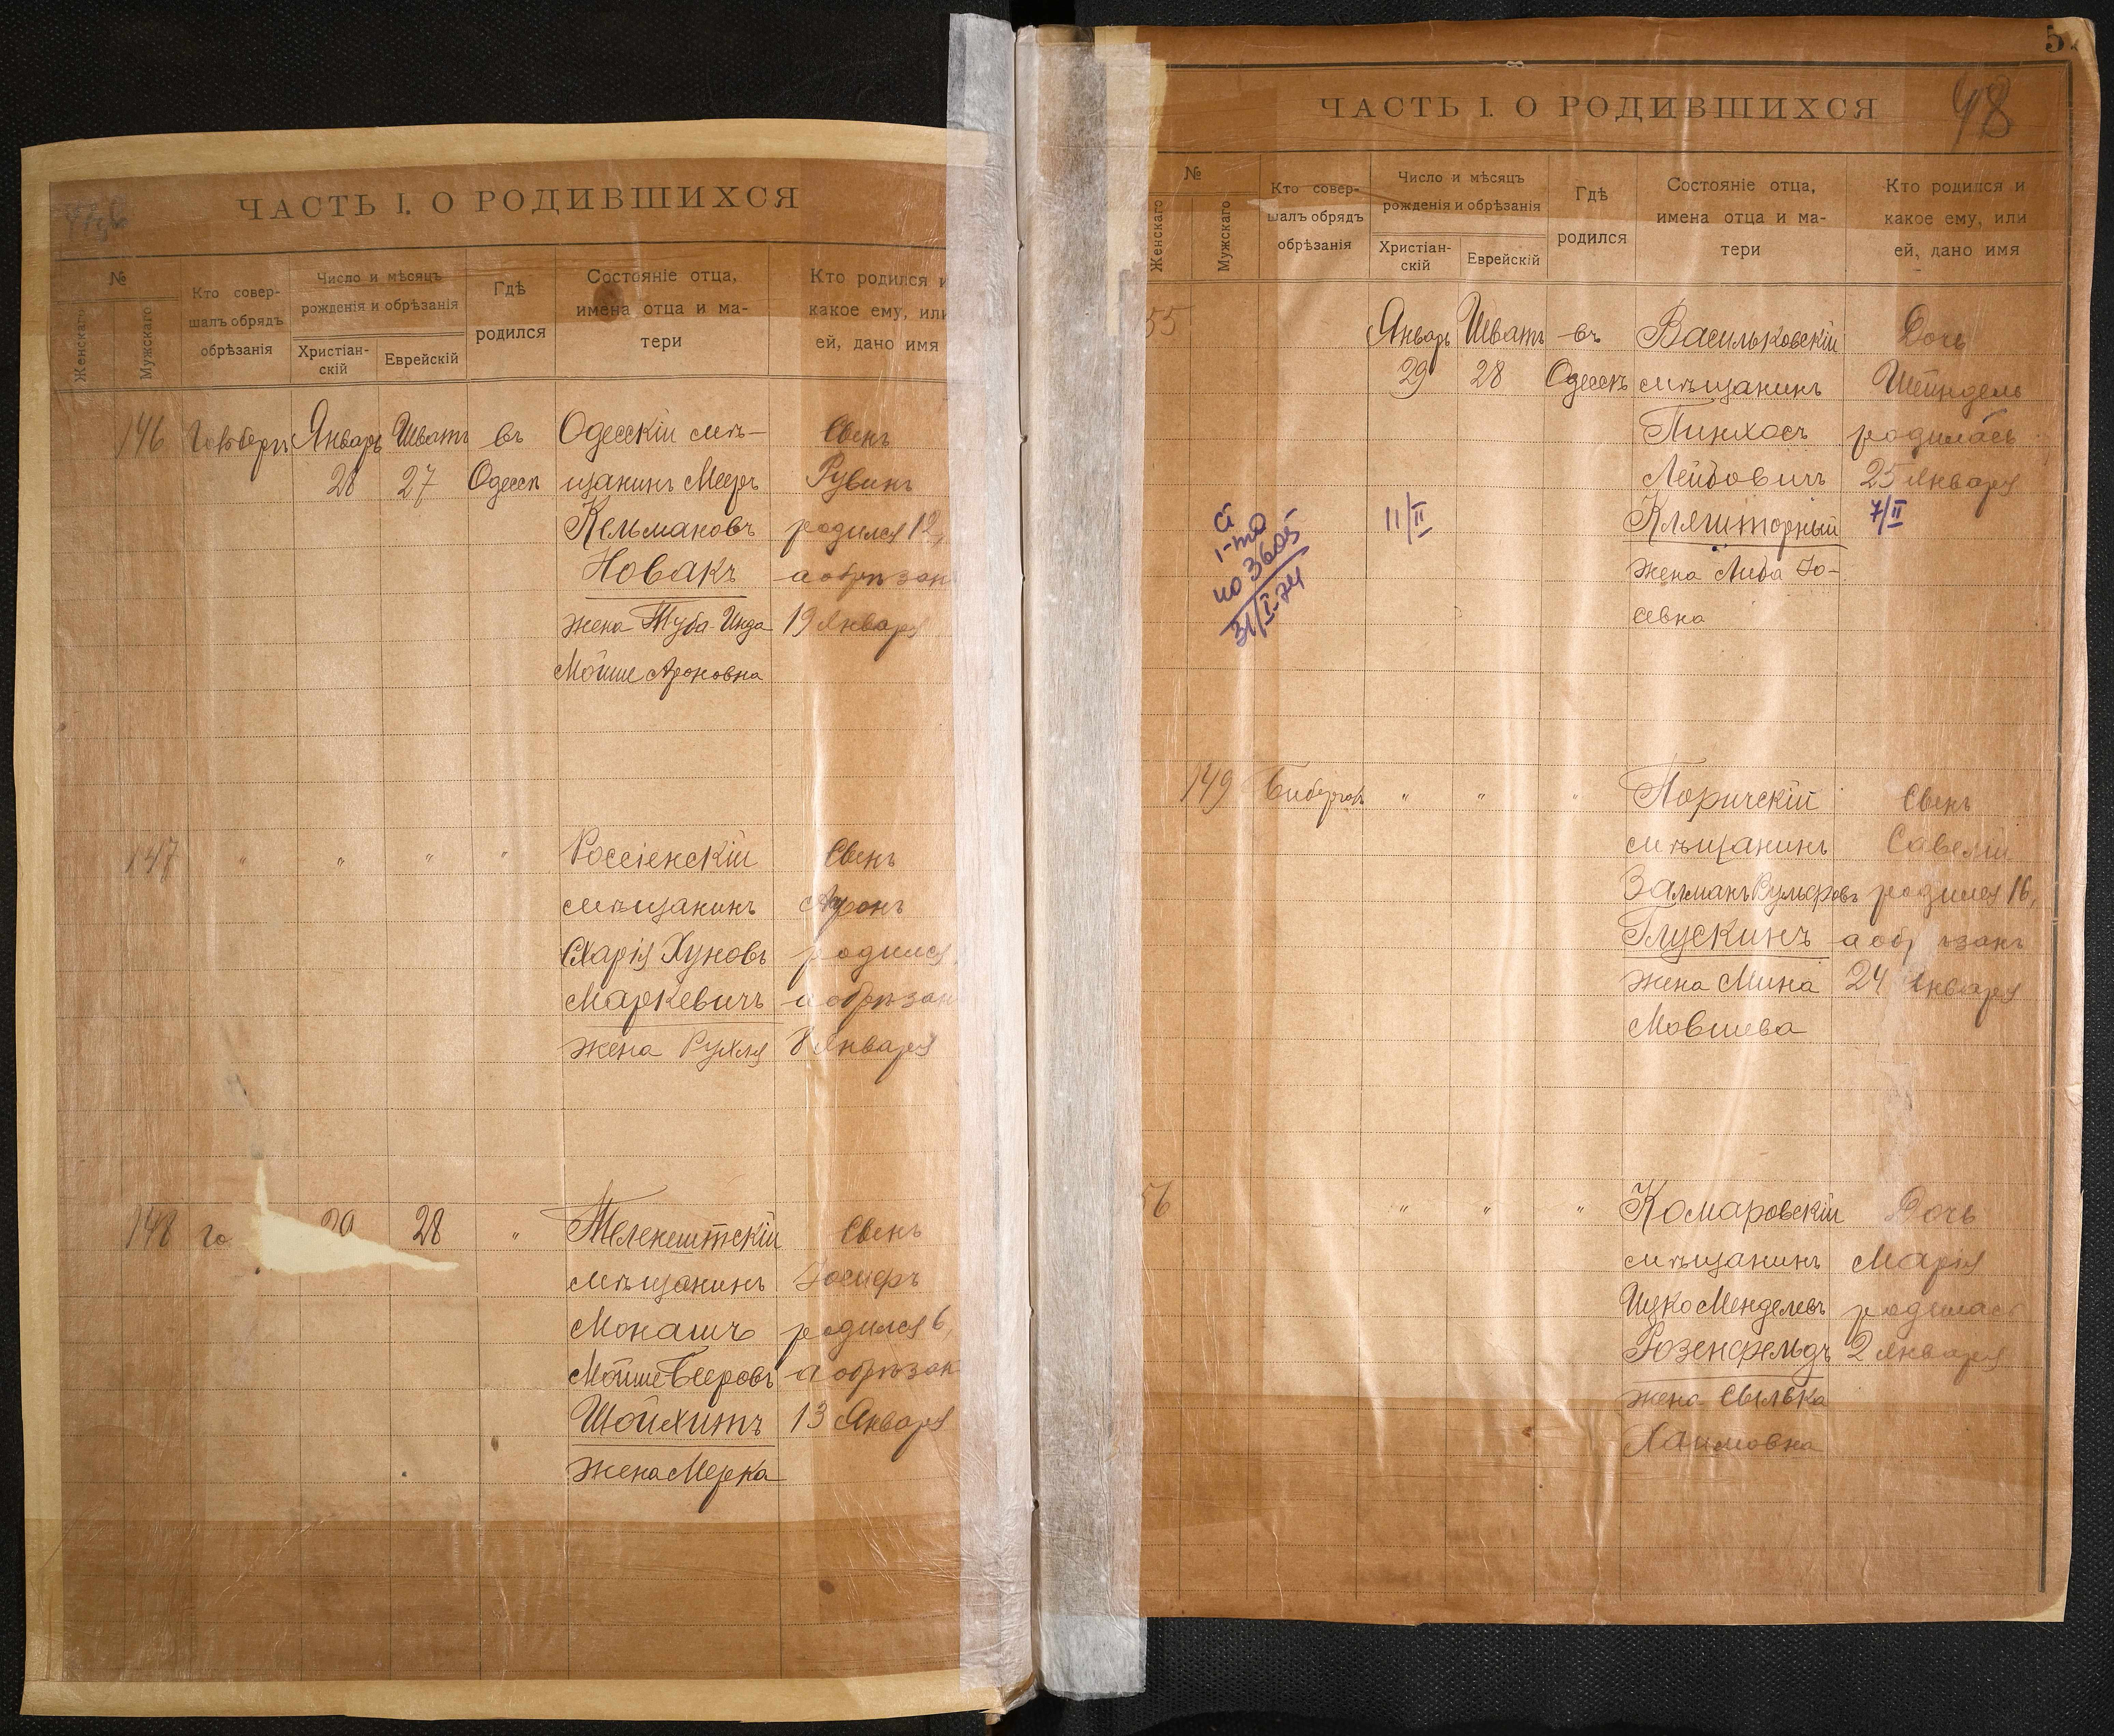 ЧАСТЬ I. О РОДИВШИХСЯ
№
Женскаго
Мужскаго
Кто совер-
шалъ обрядъ
обрѣзанія
Число и мѣсяцъ
рожденія и обрѣзанія
Христіан-
скій
Еврейскій
Гдѣ
родился
Состояніе отца,
имена отца и ма-
тери
Кто родился и
какое ему, или
ей, дано имя
146 Январь Шватъ въ Одесскій мѣ- Сынъ
28 27 Одесск щанинъ Мееръ Рувинъ
Кельмановъ родился 12,
Новакъ а обрѣзан
жена Туба-Инда 19 Января
Мойше Ароновна
147 " " " " Россіенскій Сынъ
мѣщанинъ Аронъ
Хуновъ родился
Маркевичъ а обрѣзан
жена Рухля 8 Января
148 Го 29 28 " Теленештскій Сынъ
мѣщанинъ Іосифъ
Монашъ родился 6,
Мойше Бееровъ а обрѣзан
Шойхитъ 13 Января
жена Мерка
5
48
ЧАСТЬ I. О РОДИВШИХСЯ
№
Женскаго
Мужскаго
Кто совер-
шалъ обрядъ
обрѣзанія
Число и мѣсяцъ
рожденія и обрѣзанія
Христіан-
скій
Еврейскій
Гдѣ
родился
Состояніе отца,
имена отца и ма-
тери
Кто родился и
какое ему, или
ей, дано имя
55 Январь Шватъ въ Васильковскій Дочь
29 28 Одессѣ мѣщанинъ Шейндель
Пинхосъ родилась
Лейбовичъ 25 Января
11/II Кляшторный 7/II
жена Либа Іо-
севна
но 3605
31/I-74
149 " " " Поричскій Сынъ
мѣщанинъ Савелій
Залманъ родился 16,
Глускинъ а обрѣзанъ
жена Мина 24 Января
Мовшева
56 " " " Комаровскій Дочь
мѣщанинъ Марія
Ицко Менделевъ родилась
Розенфельдъ 2 Января
жена
Хаимовна